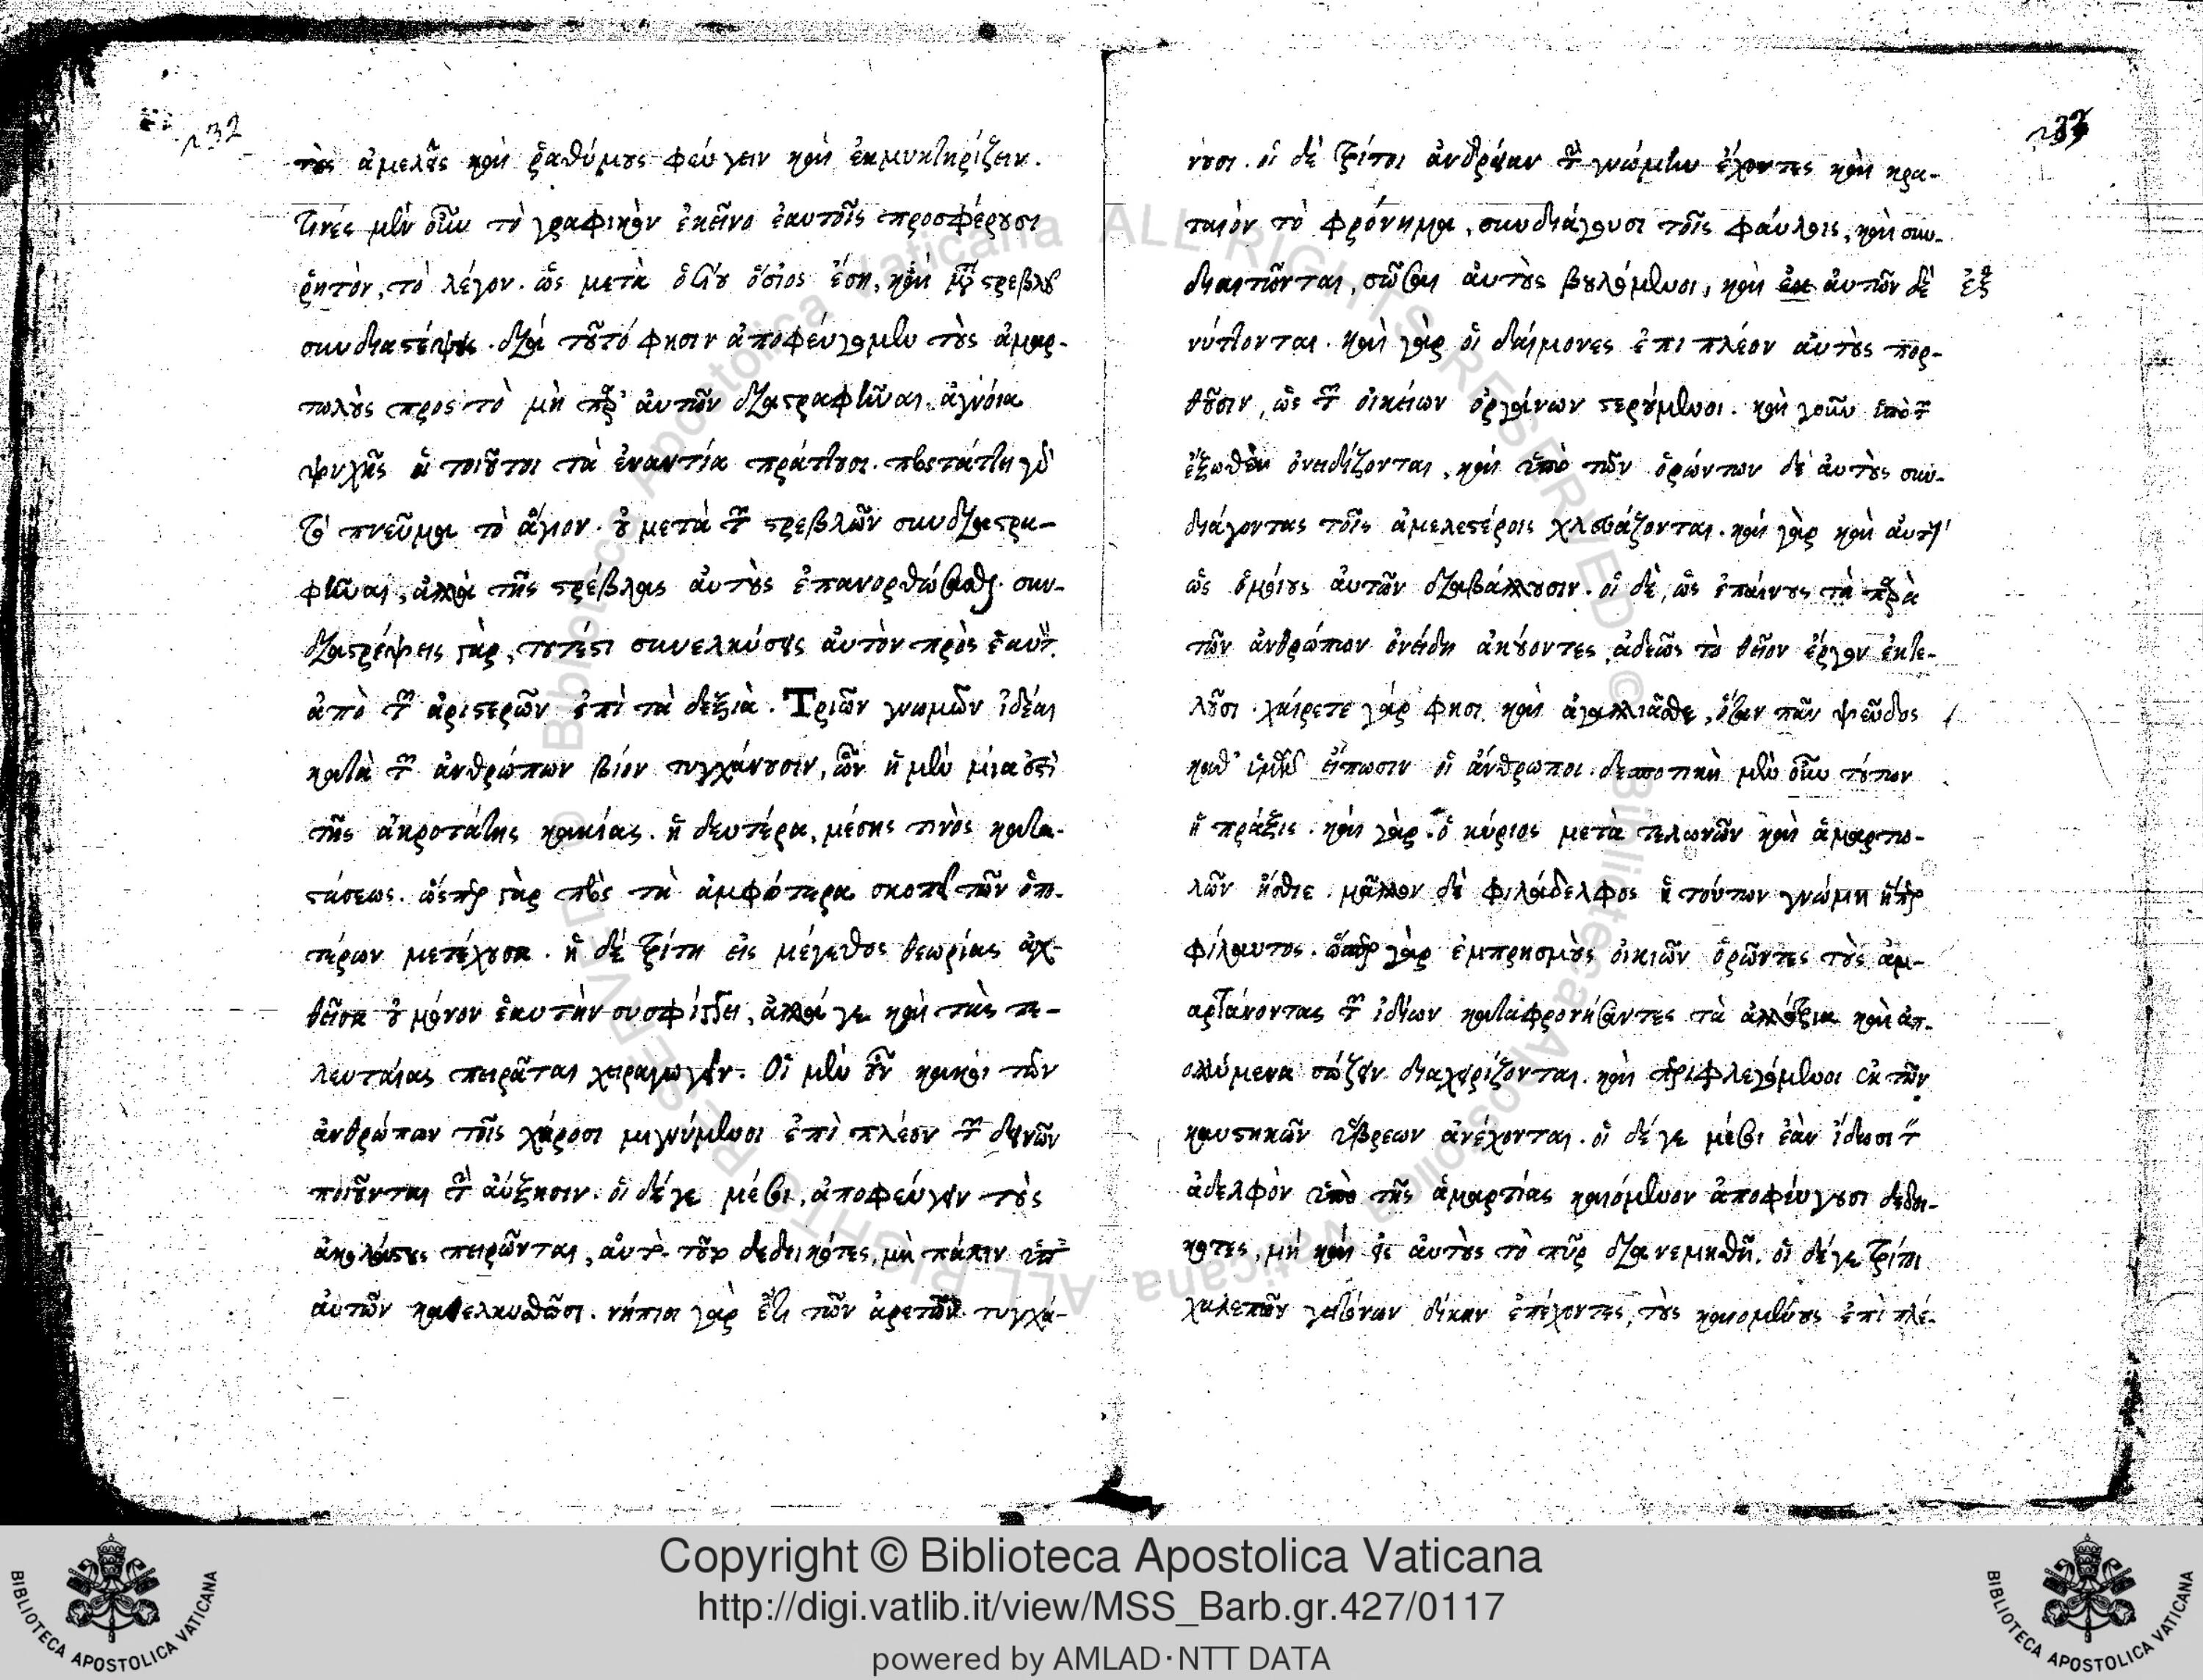 232
τοὺς ἀμελεῖς καὶ ῥαθύμους φεύγειν καὶ ἐκμυκτηρίζειν.
τινές μὲν οὖν τὸ γραφικὸν ἐκεῖνο ἑαυτοῖς προσφέρουσι
ῥητὸν, τὸ λέγον. ὡς μετὰ ὁσίου ὅσιος ἔσῃ, καὶ μετὰ στρεβλοῦ
συνδιαστρέψεις. διά τοῦτό φησιν ἀποφεύγομεν τοὺς ἁμαρ-
τωλοὺς προς τὸ μὴ παρ' αὐτῶν διαστραφῆναι. ἀγνοία
ψυχῆς οἱ τοιοῦτοι τὰ ἐναντία πράττουσι. προστάττει γὰρ
τὸ πνεῦμα τὸ ἅγιον. οὐ μετὰ τῶν στρεβλῶν συνδιαστρα-
φῆναι, ἀλλὰ τῆς στρέβλας αὐτοὺς ἐπανορθώσασθαι. συν-
διαστρέψεις γὰρ, τουτέστι συνελκύσεις αὐτὸν πρὸς ἑαυτὸν
ἀπὸ τῶν ἀριστερῶν ἐπὶ τὰ δεξιὰ. Τριῶν γνωμῶν ἰδέαι
κατὰ τὸν ἀνθρώπων βίον τυγχάνουσιν, ὧν ἡ μὲν μία ἐστὶ
τῆς ἀκροτάτης κακίας. ἡ δευτέρα, μέσης τινὸς κατα-
στάσεως. ὥσπερ γὰρ πρὸς τὰ ἀμφότερα σκοπεῖ τῶν ὁπο-
τέρων μετέχουσα. ἡ δέ τρίτη εἰς μέγεθος θεωρίας ἀχ-
θεῖσα οὐ μόνον ἑαυτὴν συσφίγγει, ἀλλά γε καὶ τὰς τε-
λευταίας πειρᾶται χειραγωγεῖν. Οἱ μὲν οὖν κακοὶ τῶν
ἀνθρώπων τοῖς χείροσι μιγνύμενοι ἐπὶ πλέον τῶν δεινῶν
ποιοῦνται τὴν αὔξησιν. οἱ δέ γε μέσοι, ἀποφεύγειν τοὺς
ἀκολάστους πειρῶνται, αὐτὸ τοῦτο δεδοικότες, μὴ πάλιν ὑπ'
αὐτῶν καθελκυσθῶσι. νήπιοι γὰρ ἔτι τῶν ἀρετῶν τυγχά-
233
νουσι. οἱ δὲ τρίτοι ἀνδρείαν τὴν γνώμην ἔχοντες καὶ κρα-
ταιὸν τὸ φρόνημα, συνδιάγουσι τοῖς φαύλοις, καὶ συν-
διαιτῶνται, σῶσαι αὐτοὺς βουλόμενοι, καὶ ἐκ αὐτῶν δὲ ἐξ
νύττονται. καὶ γὰρ οἱ δαίμονες ἐπι πλέον αὐτοὺς πορ-
θοῦσιν, ὡς τῶν οἰκείων ὀργάνων στερούμενοι. καὶ γοῦν ὑπὸ τῶν
ἔξωθεν ὀνειδίζονται, καὶ ὑπὸ τῶν ὁρώντων δὲ αὐτοὺς συν-
διάγοντας τοῖς ἀμελεστέροις χλευάζονται. καὶ γὰρ καὶ αὐτοὶ
ὡς ὁμοίους αὐτῶν διαβάλλουσιν. οἱ δὲ, ὡς ἐπαίνους τὰ παρὰ
τῶν ἀνθρώπων ὀνείδη ἀκούοντες, ἀδεῶς τὸ θεῖον ἔργον ἐκτε-
λοῦσι. χαίρετε γάρ φησι καὶ ἀγαλλιᾶσθε, ὅταν πᾶν ψεῦδος
καθ' ὑμῶν εἴπωσιν οἱ ἄνθρωποι. δεσποτικὴ μὲν οὖν τούτων
ἡ πρᾶξις. καὶ γὰρ ὁ κύριος μετὰ τελωνῶν καὶ ἁμαρτω-
λῶν ἤσθιε. μᾶλλον δὲ φιλάδελφος ἡ τούτων γνώμη ἤπερ
φίλαυτος. ὥσπερ γὰρ ἐμπρησμοὺς οἰκιῶν ὁρῶντες τοὺς ἁμ-
αρτάνοντας τῶν ἰδίων καταφρονήσαντες τὰ ἀλλότρια καὶ ἀπ-
ολλύμενα σώζειν διαχειρίζονται. καὶ περιφλεγόμενοι ἐκ τῶν
καυστικῶν ὕβρεων ἀνέχονται. οἱ δέ γε μέσοι ἐὰν ἴδωσι τὸν
ἀδελφὸν ὑπὸ τῆς ἁμαρτίας καιόμενον ἀποφεύγουσι δεδοι-
κότες, μή καὶ εἰς αὐτοὺς τὸ πῦρ διανεμηθῇ. οἱ δέ γε τρίτοι
χαλεπῶν γειτόνων δίκην ἐπέχοντες, τοὺς καιομένους ἐπὶ πλέ-
Copyright © Biblioteca Apostolica Vaticana
http://digi.vatlib.it/view/MSS_Barb.gr.427/0117
powered by AMLAD·NTT DATA
BIBLIOTECA APOSTOLICA VATICANA
BIBLIOTECA APOSTOLICA VATICANA